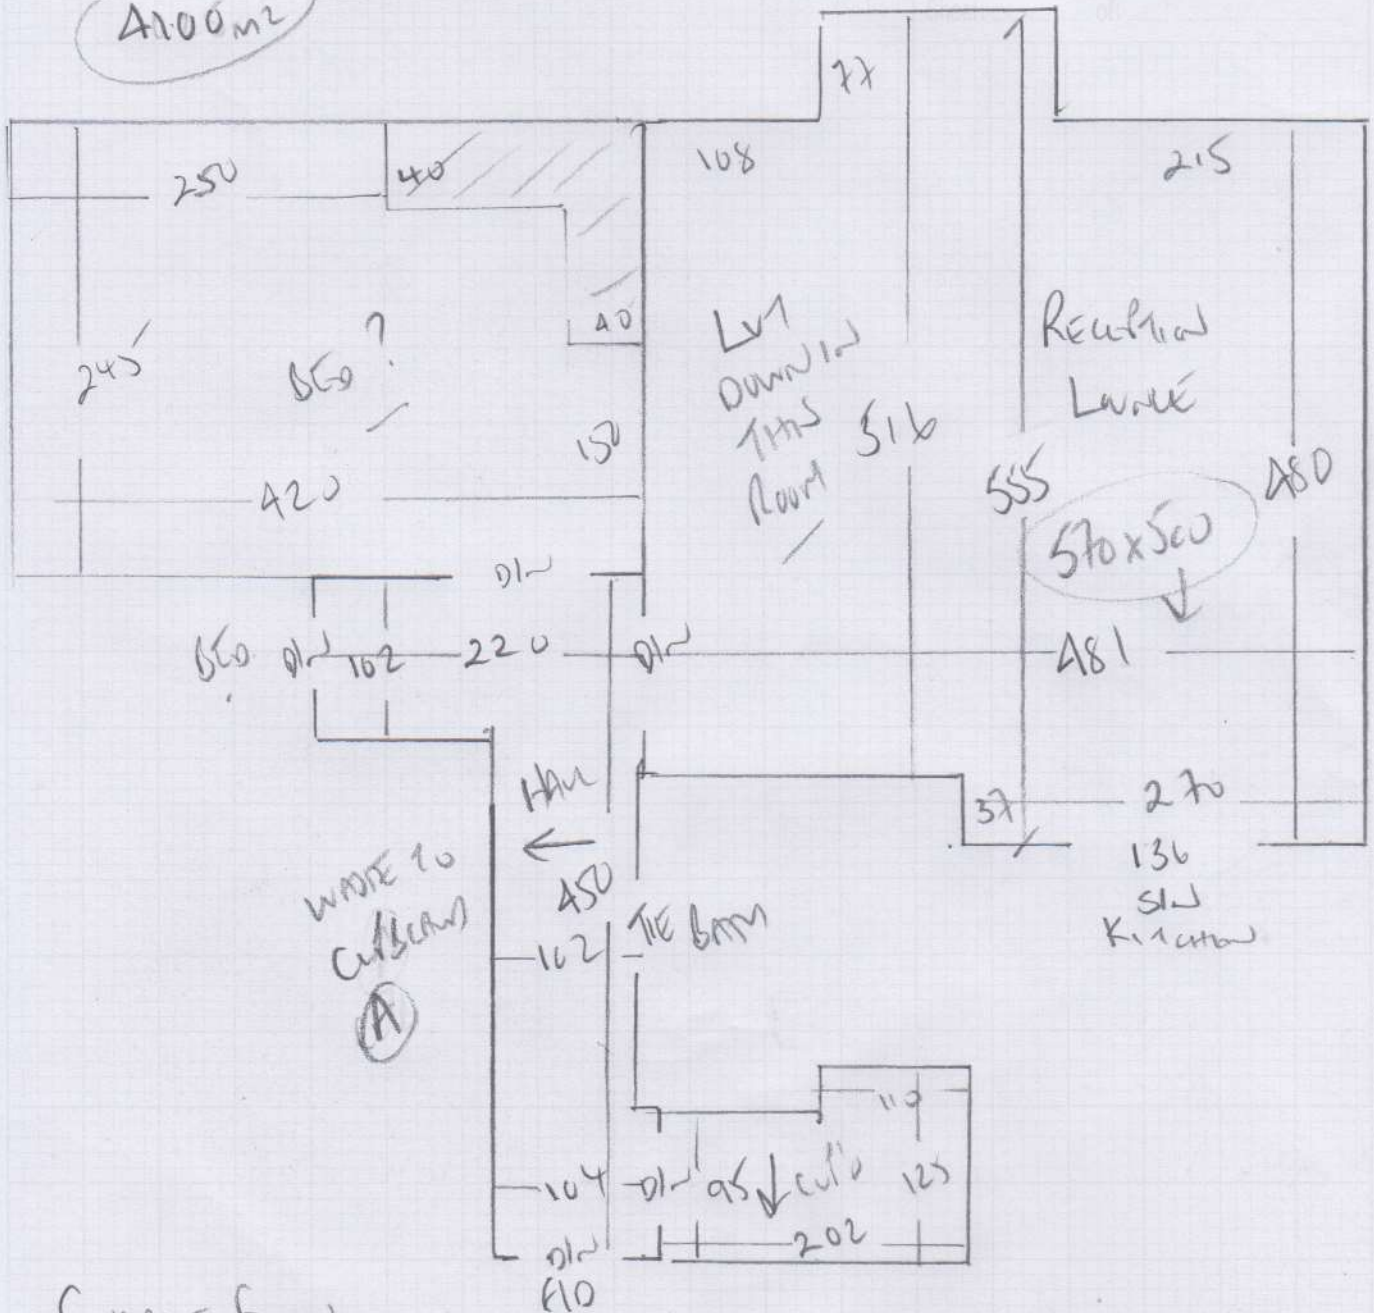 41.00m2
77
250
40
108
215
40
245
BED ?
150
420
LVT
DOWN IN
THIS
ROOM
516
555
RECEPTION
LOUNGE
480
570x500
481
D/W
BED
D/W
102
220
D/W
HALL
37
270
136
S/W
KITCHEN
WASTE TO
CUPBOARD
A
450
102
TIE BATH
110
104
D/W
95
CUP'D
125
202
D/W
F/D